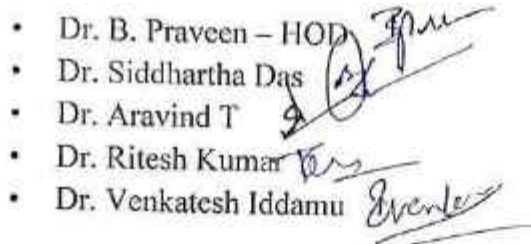 • Dr. B. Praveen – HOD
• Dr. Siddhartha Das
• Dr. Aravind T
• Dr. Ritesh Kumar
• Dr. Venkatesh Iddamu